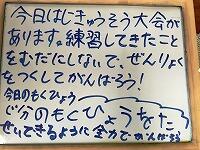 今日はじきゅうそう大会が
あります。練習してきたこと
をむだにしないで、ぜんりょく
をつくしてがんばろう!
今日のもくひょう
じ分のもくひょうをたっ
せいできるように全力でがんばろう